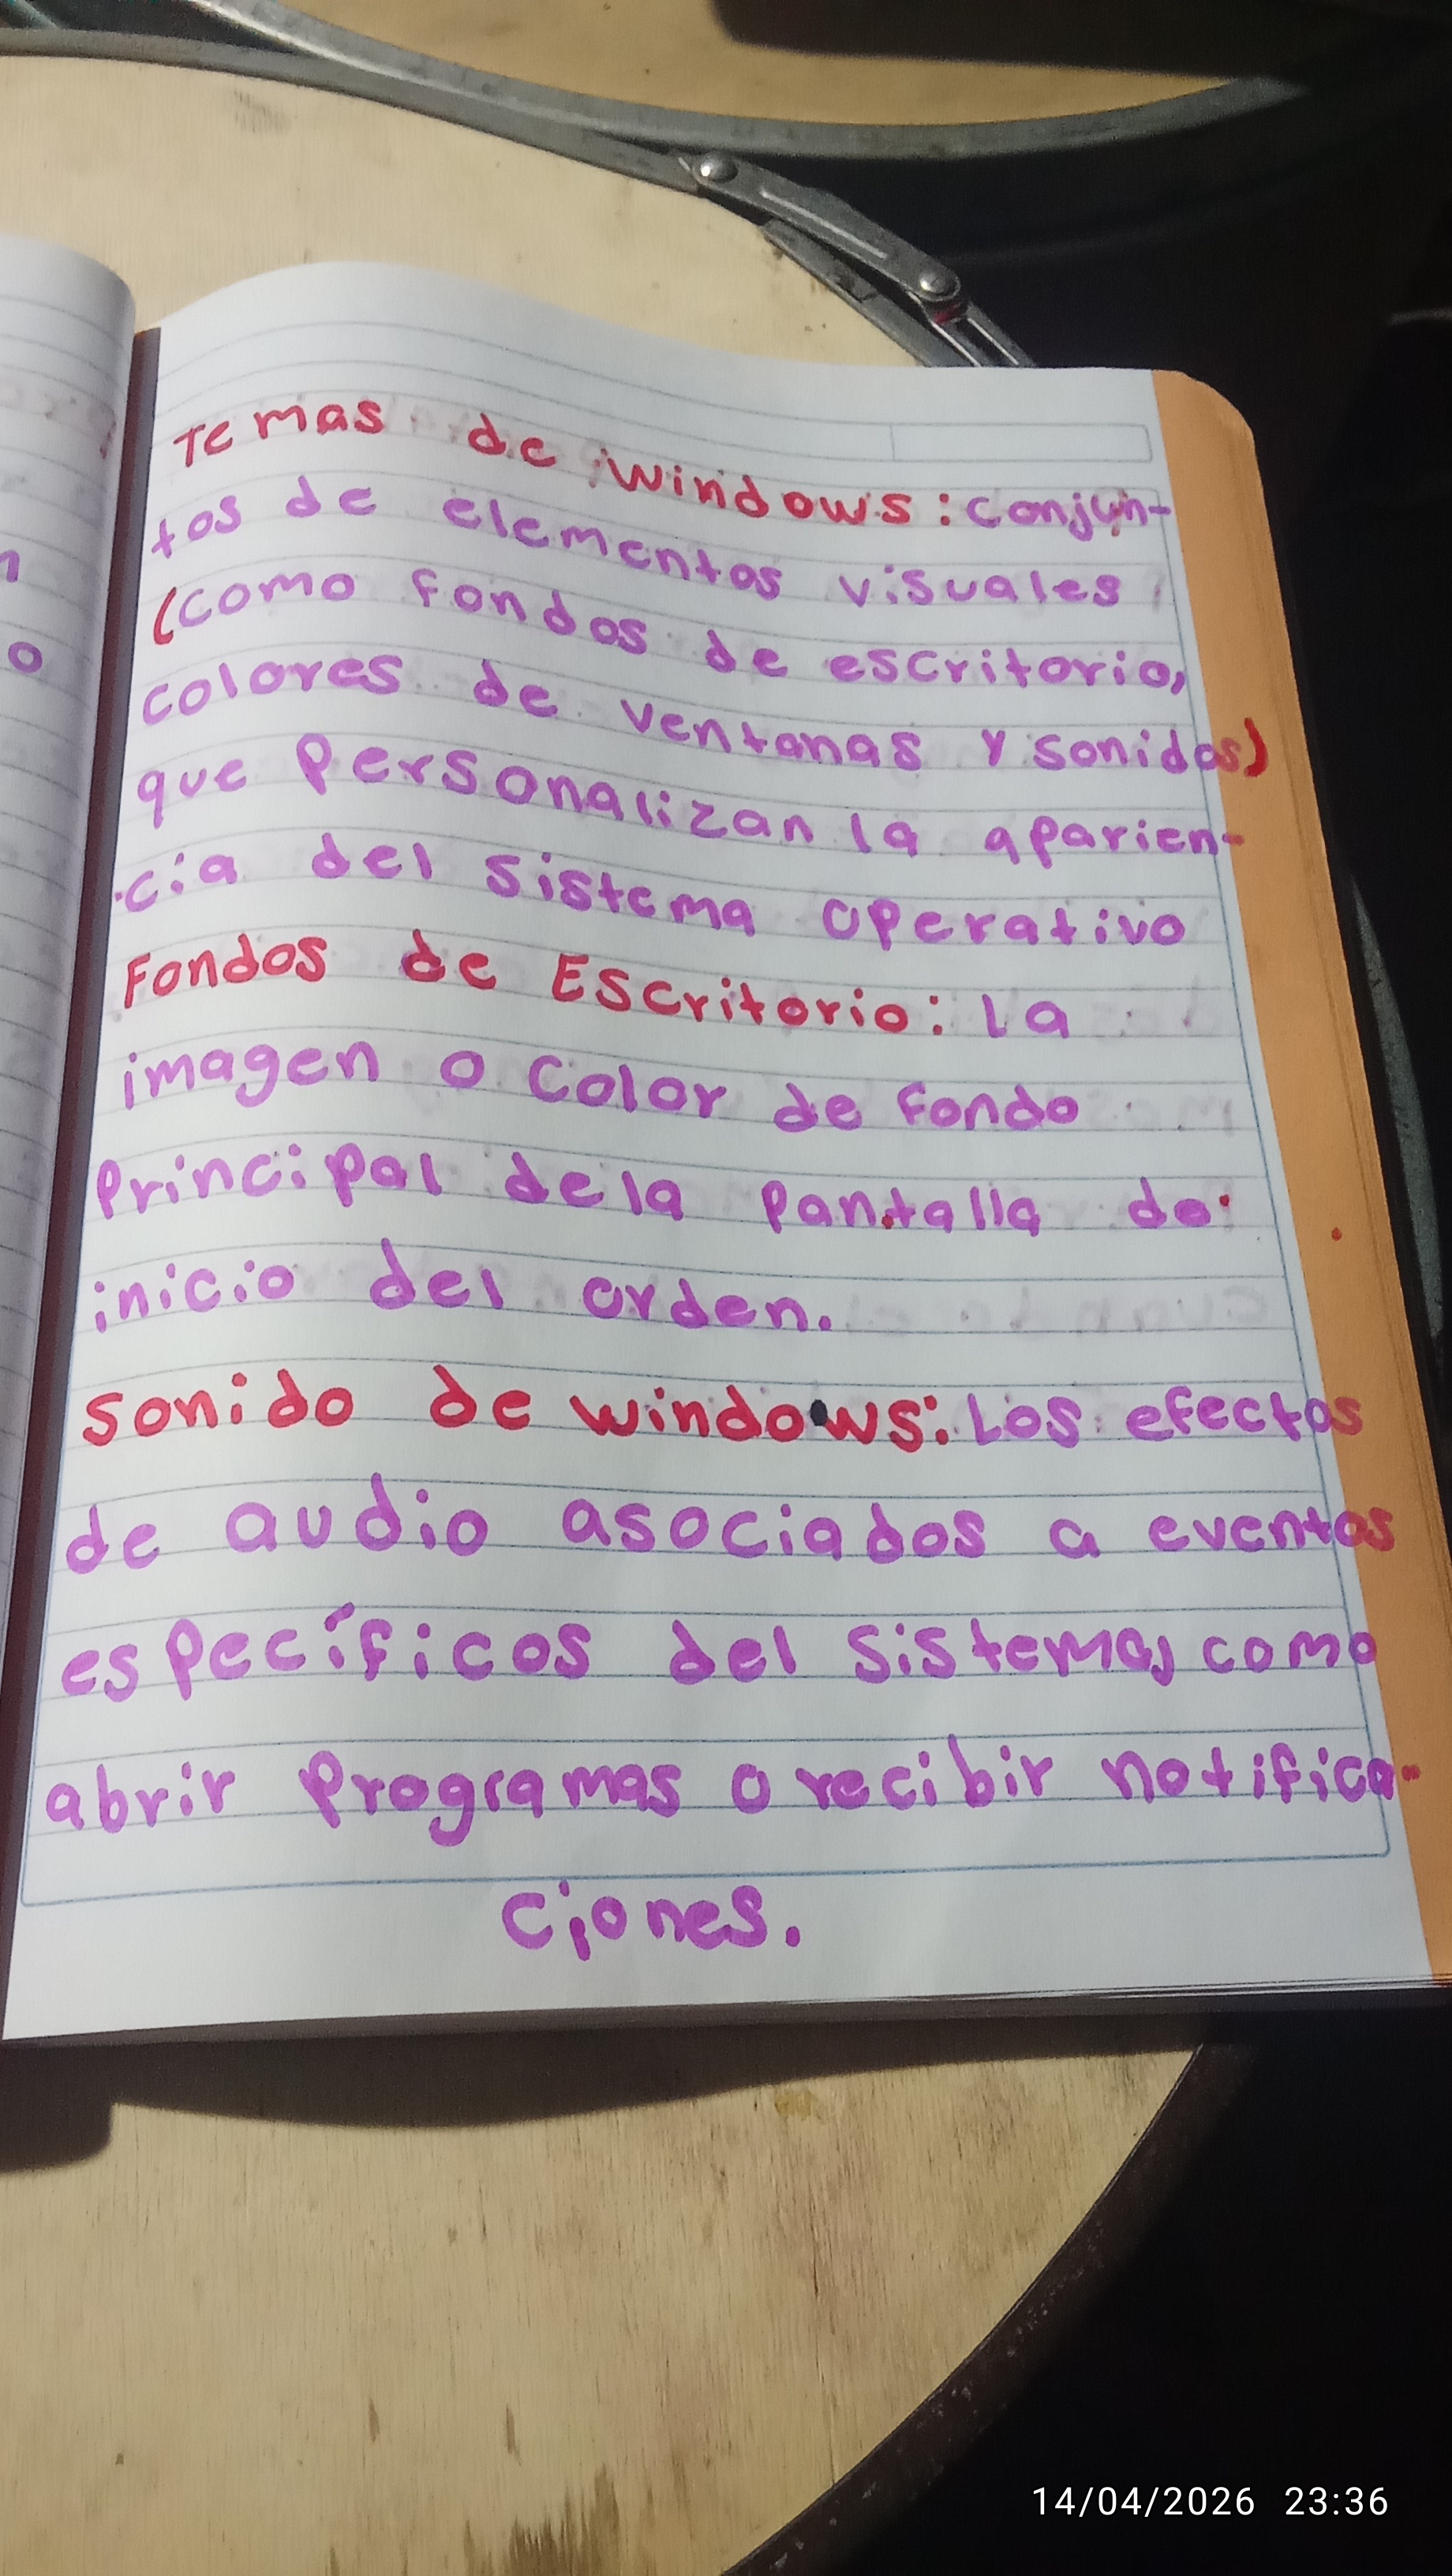 Temas de windows: conjun-
tos de elementos visuales
(como fondos de escritorio,
colores de ventanas y sonidos)
que Personalizan la aparien-
cia del sistema operativo
Fondos de Escritorio: La
imagen o color de fondo
Principal dela Pantalla de
inicio del orden.
Sonido de windows: Los efectos
de audio asociados a eventos
específicos del sistema, como
abrir Programas o recibir notifica-
ciones.
14/04/2026 23:36